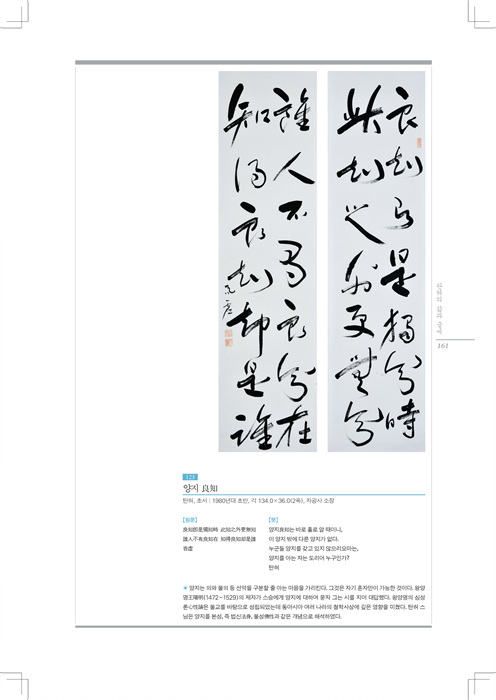 良知卽是獨知時
此知之外更無知
誰人不有良知在
知得良知却是誰
呑虛
161
123
양지 良知
탄허, 초서 | 1980년대 초반, 각 134.0×36.0(2폭), 자광사 소장
[原文]
良知卽是獨知時 此知之外更無知
誰人不有良知在 知得良知却是誰
呑虛
[譯]
양지良知는 바로 홀로 알 때이니,
이 양지 밖에 다른 양지가 없다.
누군들 양지를 갖고 있지 않으리오마는,
양지를 아는 자는 도리어 누구인가?
탄허
양지는 의와 불의 등 선악을 구분할 줄 아는 마음을 가리킨다. 그것은 자기 혼자만이 가능한 것이다. 왕양
명王陽明(1472~1529)의 제자가 스승에게 양지에 대하여 묻자 그는 시를 지어 대답했다. 왕양명의 심성
론心性論은 불교를 바탕으로 성립되었는데 동아시아 여러 나라의 철학사상에 깊은 영향을 미쳤다. 탄허 스
님은 양지를 본성, 즉 법신法身, 불성佛性과 같은 개념으로 해석하였다.